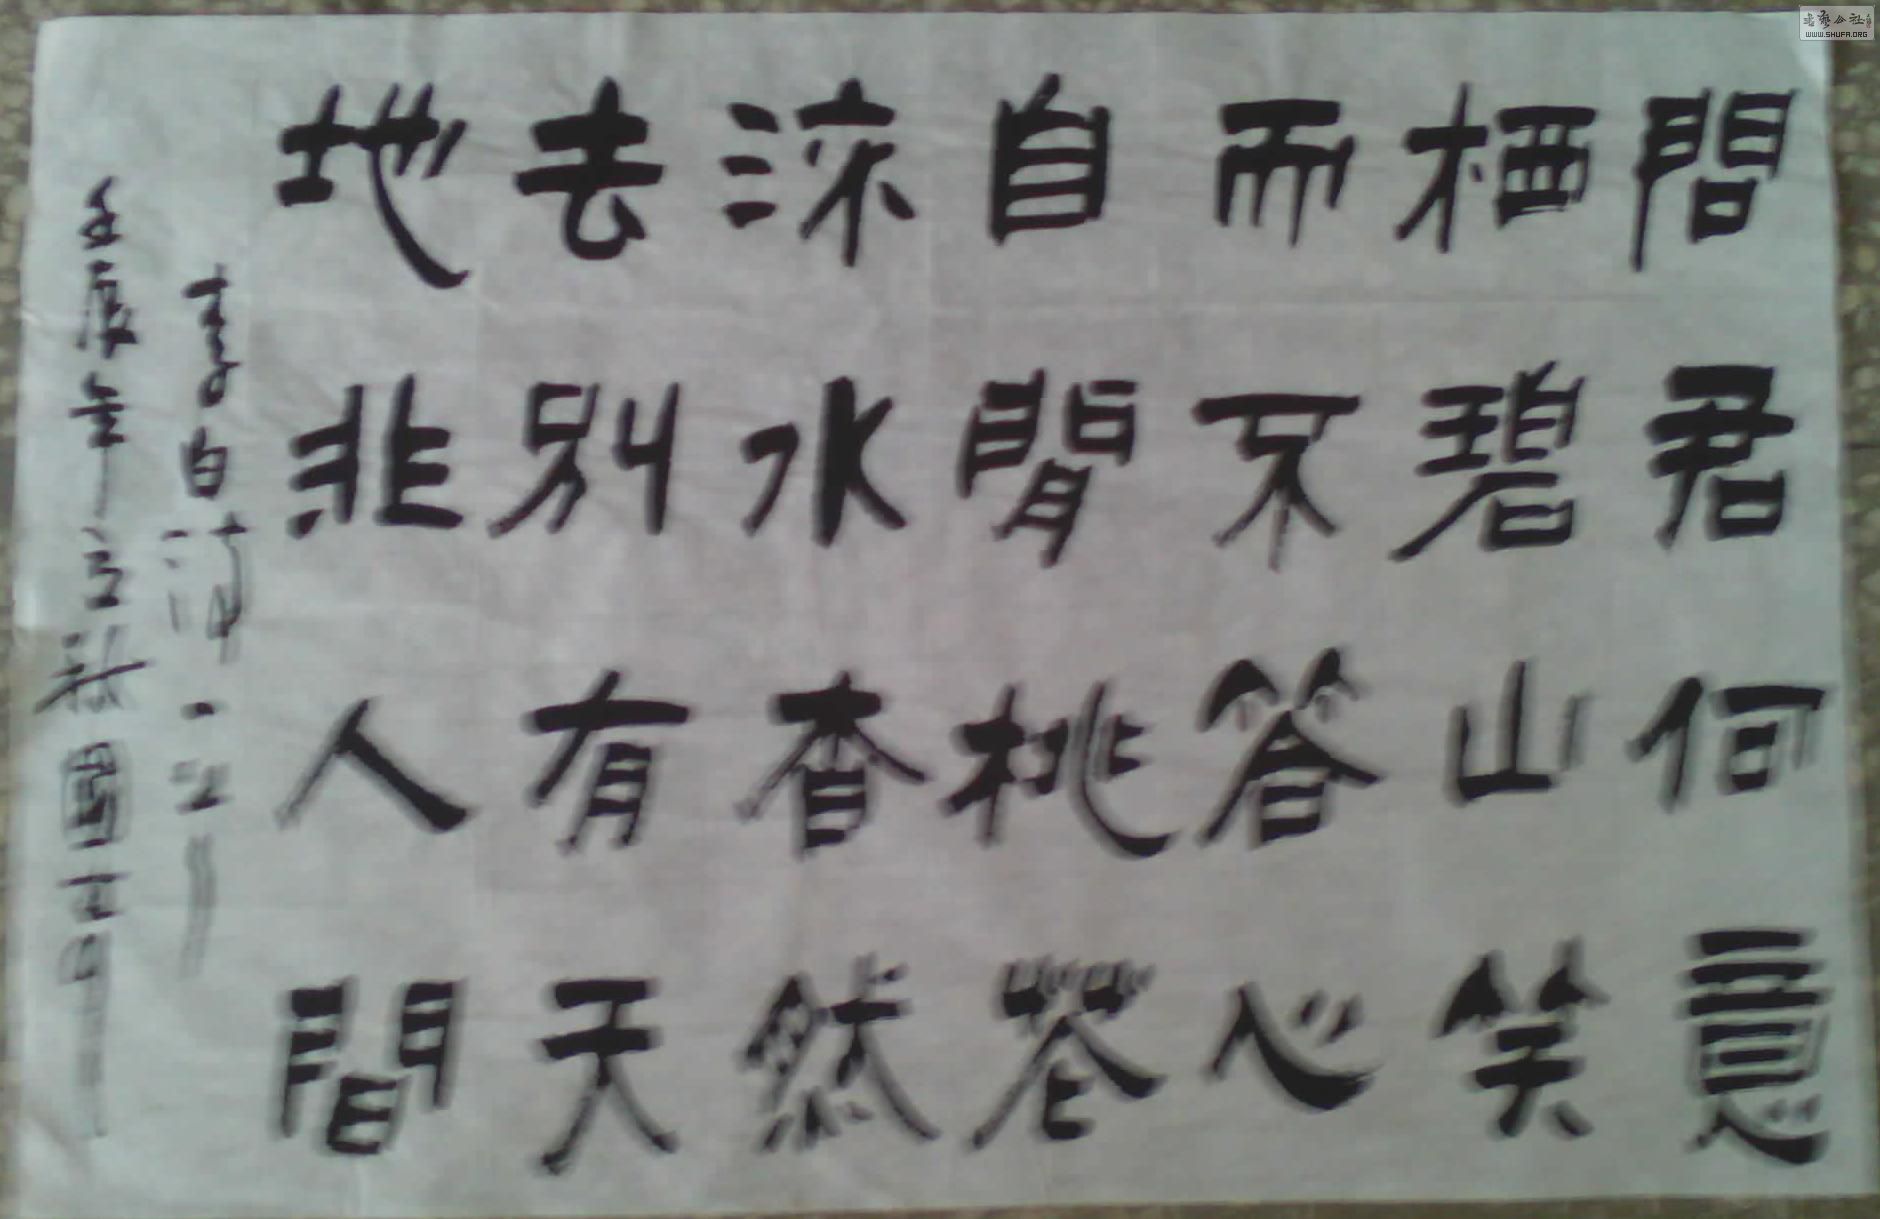 問君何意
栖碧山笑
而不答心
自閒桃花
流水杳然
去別有天
地非人間
李白诗一首
壬辰年立秋國
書藝公社
WWW.SHUFA.ORG